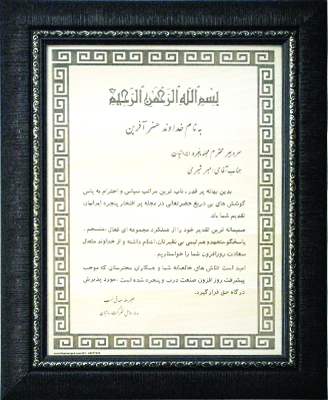 بسم الله الرحمن الرحیم
به نام خداوند هنر آفرین
سردبیر محترم مجله پنجره ایرانیان
جناب آقای امیر
بدین بهانه پر قدر، ناب ترین مراتب سپاس و احترام به پاس
کوشش های بی دریغ حضرتعالی در مجله پر افتخار پنجره ایرانیان
تقدیم شما باد
صمیمانه ترین تقدیر خود را از عملکرد مجموعه ای فعال، منسجم،
پاسخگو متعهد و هم تیمی بی نظیرتان، اعلام داشته و از خداوند متعال
سعادت روزافزون شما را خواستاریم
امید است تلاش های خالصانه شما و همکاران محترمتان که موجب
پیشرفت روز افزون صنعت درب و پنجره شده است، مورد پذیرش
درگاه حق قرار گیرد.